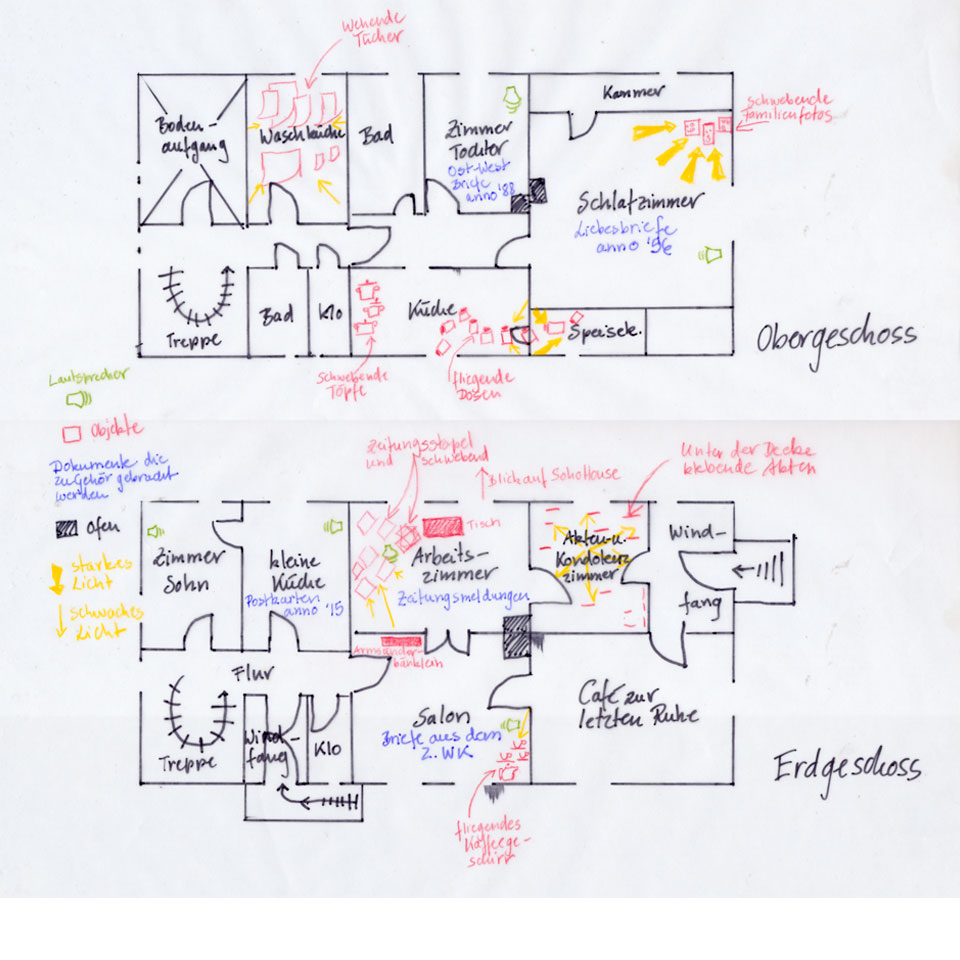 Wehende
Tücher
Boden-
aufgang
Waschküche
Bad
Zimmer
Tochter
Ost-West
Briefe
anno '88
Kammer
schwebende
Familienfotos
Schlafzimmer
Liebesbriefe
anno '56
Treppe
Bad
Klo
Küche
Speisek.
Obergeschoss
schwebende
Töpfe
fliegende
Dosen
Lautsprecher
Objekte
Dokumente die
zu Gehör gebracht
werden
Ofen
starkes
Licht
schwaches
Licht
Zeitungsstapel
und schwebend
Blick auf SohoHouse
Unter der Decke
klebende Akten
Zimmer
Sohn
kleine
Küche
Postkarten
anno '15
Tisch
Arbeits-
zimmer
Zeitungsmeldungen
Akten u.
Kondolenz
zimmer
Wind-
fang
Armsünder
bänklein
Flur
Treppe
Wind-
fang
Klo
Salon
Briefe aus dem
2. WK
Café zur
letzten Ruhe
Erdgeschoss
fliegendes
Kaffeege-
schirr